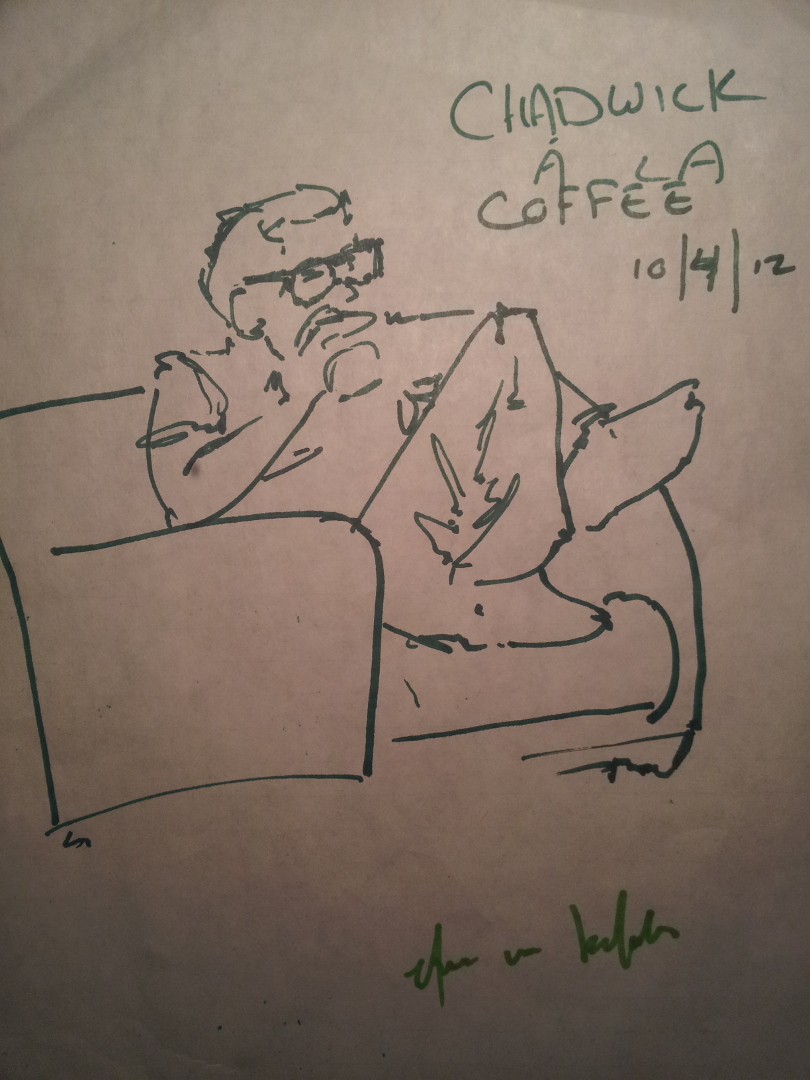 CHADWICK
À LA
COFFEE
10/4/12